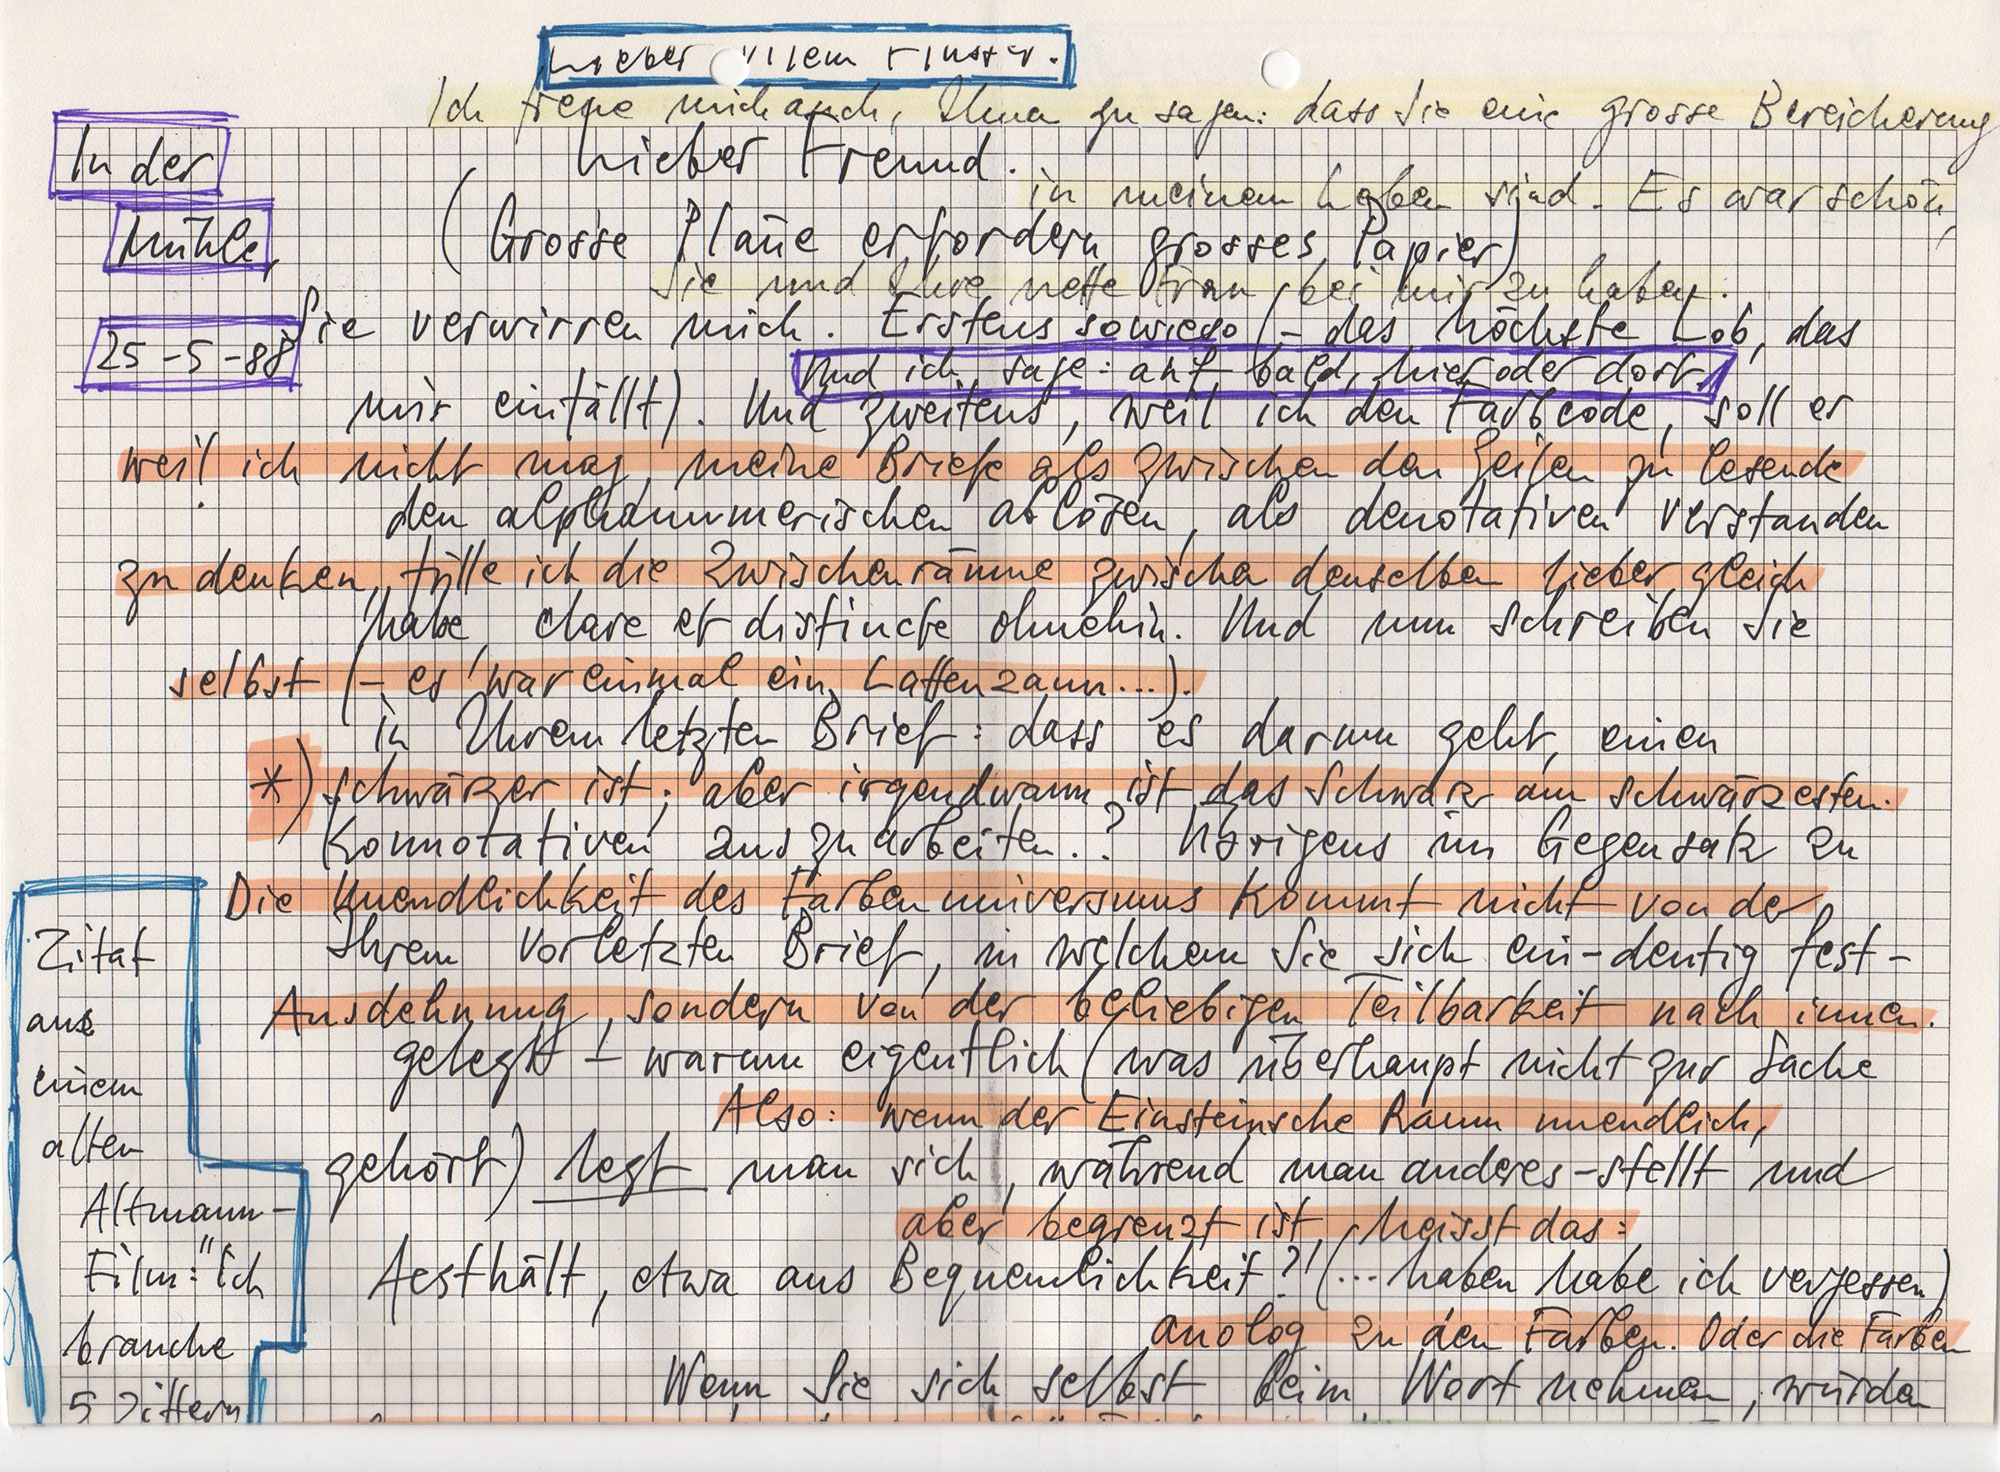 Lieber Vilém Flusser.
Ich freue mich auch, Ihnen zu sagen: dass Sie eine grosse Bereicherung
In der
Lieber Freund.
in meinem Leben sind. Es war schön,
Mühle,
(Grosse Pläne erfordern grosses Papier)
Sie und Ihre nette Frau bei mir zu haben.
25-5-88
Sie verwirren mich. Erstens sowieso (- das höchste Lob, das
Und ich sage: auf bald, hier oder dort.
mir einfällt). Und zweitens, weil ich den Farbcode, soll er
weil ich nicht mag, meine Briefe als zwischen den Zeilen zu lesende
den alphanumerischen ablösen, als denotativen verstanden
zu denken, fülle ich die Zwischenräume zwischen denselben lieber gleich
habe, clare et distincte ohnehin. Und nun schreiben Sie
selbst (- es war einmal ein Lattenzaun...).
in Ihrem letzten Brief: dass es darum geht, einen
*) schwärzer ist; aber irgendwann ist das Schwarz am schwärzesten.
Konnotativen auszuarbeiten.? Übrigens im Gegensatz zu
Die Unendlichkeit des Farbenuniversums kommt nicht von der
Ihrem vorletzten Brief, in welchem Sie sich ein-deutig fest-
Ausdehnung, sondern von der beliebigen Teilbarkeit nach innen.
gelegt - warum eigentlich (was überhaupt nicht zur Sache
Also: wenn der Einsteinsche Raum unendlich,
gehört) legt man sich, während man anderes-stellt und
aber begrenzt ist, heisst das:
-festhält, etwa aus Bequemlichkeit?! (... haben habe ich vergessen)
analog zu den Farben. Oder die Farben
Wenn Sie sich selbst beim Wort nehmen, würden
Zitat
aus
einem
alten
Altmann-
Film: "Ich
brauche
5 Ziffern